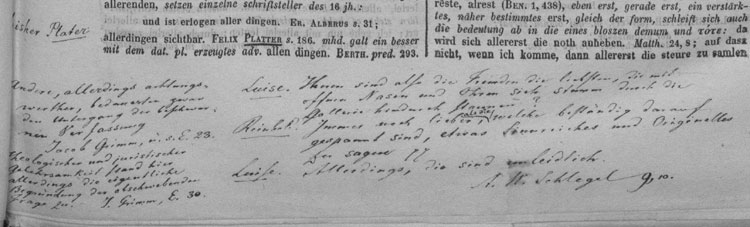 allerenden, setzen einzelne schriftsteller des 16 jh.:
und ist erlogen aller dingen. Er. Alberus s. 31;
allerdingen sichtbar. Felix Platter s. 186. mhd. galt ein besser
mit dem dat. pl. erzeugtes adv. allen dingen. Berth. pred. 293.
reste, alrest (Ben. 1, 438), eben erst, gerade erst, ein verstärk-
tes, näher bestimmtes erst, gleich der form, schleift sich auch
die bedeutung ab in die eines bloszen demum und τότε: da
wird sich allererst die noth anheben. Matth. 24, 8; auf dasz
nicht, wenn ich komme, dann allererst die steure zu samlen
Plater
Andre, allerdings achtungs-
werther, bedauerten zwar
den Untergang der
Verfassung
Jacob Grimm, u. s. E. 23.
Theologischer und juristischer
Gelehrsamkeit stand hier
allerdings die eigentliche
Begründung der obschwebenden
Frage zu. J. Grimm, E. 30.
Luise. Ihnen sind also die Fremden die liebsten, die mit
offnen Nasen und Ohren sich stumm durch die
Gallerie hindurch
Reinhold. Immer noch lieber, als die welche beständig darauf
gespannt sind, etwas Launisches und Originelles
zu sagen
Luise. Allerdings, die sind unleidlich.
A. W. Schlegel 9, 10.